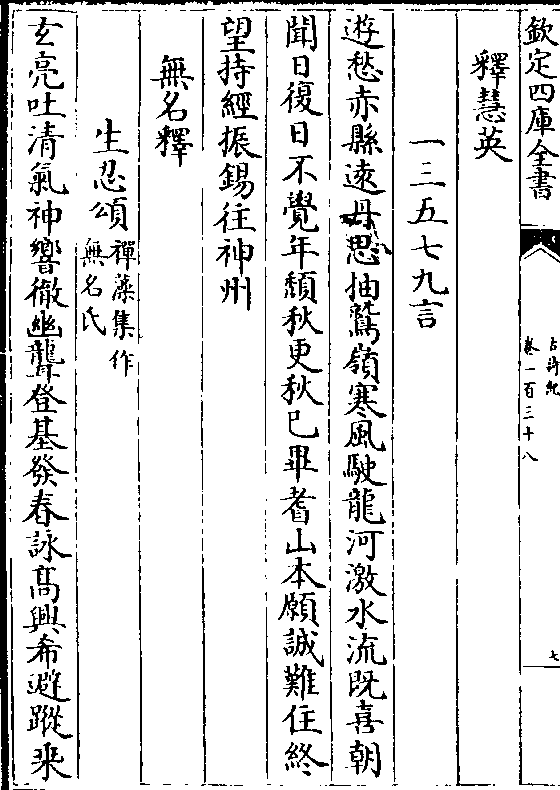 欽定四庫全書
古詩紀
卷一百三十八
七
釋慧英
一三五七九言
遊愁赤縣遠丹思抽鷲嶺寒風駛龍河激水流既喜朝
聞日復日不覺年頹秋更秋已畢耆山本願誠難住終
望持經振錫往神州
無名釋
生忍頌禪藻集作
無名氏
玄亮吐清氣神響徹幽聾登基發春詠高興希避蹤乘